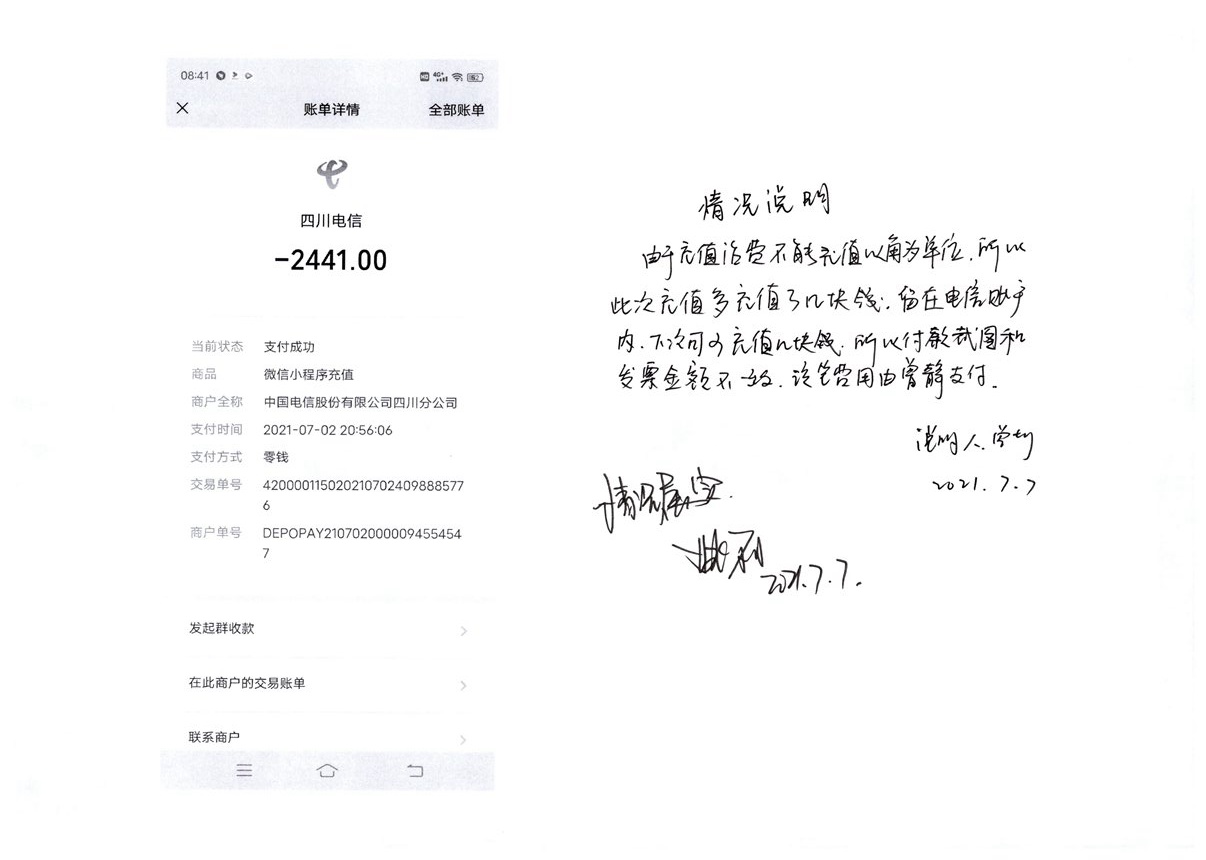 08:41
账单详情 全部账单
四川电信
-2441.00
当前状态 支付成功
商品 微信小程序充值
商户全称 中国电信股份有限公司四川分公司
支付时间 2021-07-02 20:56:06
支付方式 零钱
交易单号 420000115020210702409888577
6
商户单号 DEPOPAY210702000009455454
7
发起群收款
在此商户的交易账单
联系商户
情况说明
由于充值话费不能充值以角为单位.所以
此次充值多充值了几块钱.留在电信账户
内.下次可少充值几块钱.所以付款截图和
发票金额不一致.该笔费用由曾静支付.
说明人.曾静
2021.7.7
情况属实.
2021.7.7.